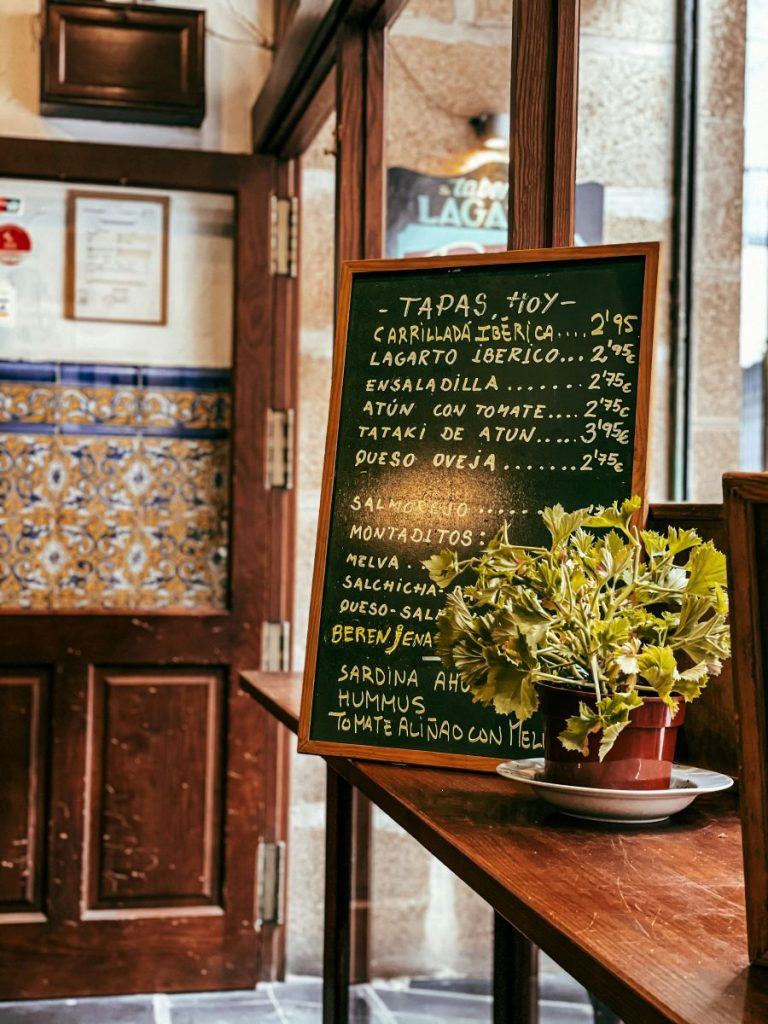 LAGA
- TAPAS, HOY -
CARRILLADA IBÉRICA.... 2'95
LAGARTO IBERICO... 2'95€
ENSALADILLA ....... 2'75€
ATÚN CON TOMATE.... 2'75€
TATAKI DE ATUN..... 3'95€
QUESO OVEJA ....... 2'75€
SALMOREJO ......
MONTADITOS:
MELVA ..
SALCHICHA-
QUESO-SAL
BERENJENA
SARDINA AHU
HUMMUS
TOMATE ALIÑAO CON MEL